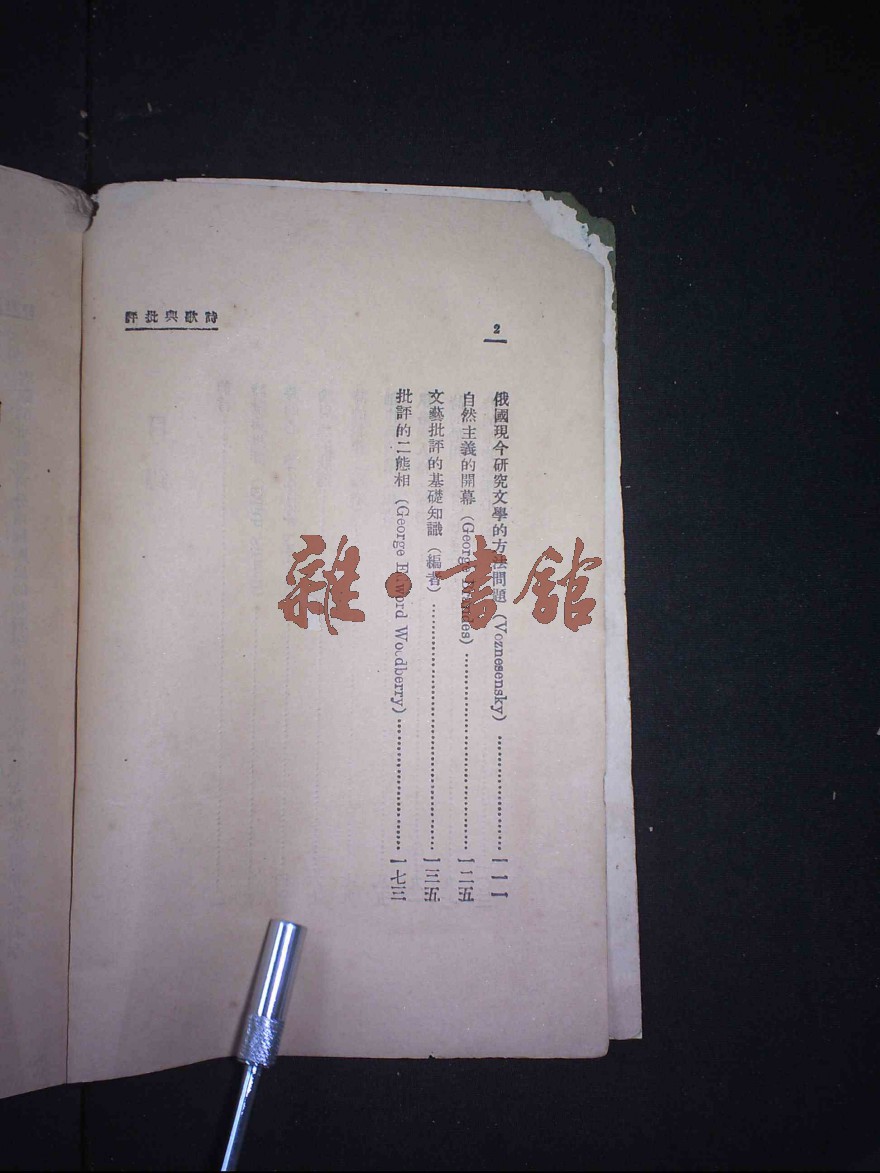 2
詩歌與批評
俄國現今研究文學的方法問題 (Voznesensky) ………………… 一一一
自然主義的開幕 (George Brandes) ………………… 一二五
文藝批評的基礎知識 (編者) ………………… 一三五
批評的二態相 (George Edword Woodberry) ………………… 一七三
雜·書館